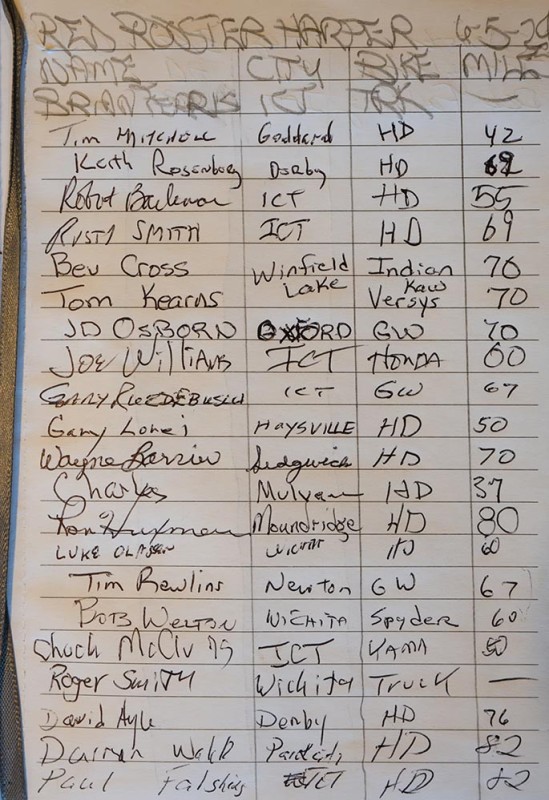 RED ROSTER HARPER 6-5-
NAME CITY BIKE MILE
BRIAN FERRIS ICT TRK —
Tim Mitchell Goddard HD 42
Keith Rosenberg Derby HD 62
Robert Backman ICT HD 55
RUSTY SMITH ICT HD 69
Bev Cross Winfield Lake Indian 70
Tom Kearns Kaw Versys 70
JD OSBORN OXFORD GW 70
JOE WILLIAMS ICT HONDA 60
GARY ICT GW 67
Gary HAYSVILLE HD 50
Wayne Sedgwick HD 70
Charles Mulvane HD 37
Ron Moundridge HD 80
LUKE WICHITA HD 60
Tim Rawlins Newton GW 67
BOB WELTON WICHITA Spyder 60
Chuck ICT YAMA 50
Roger Smith Wichita Truck —
David Derby HD 76
Darren HD 82
Paul ICT HD 82